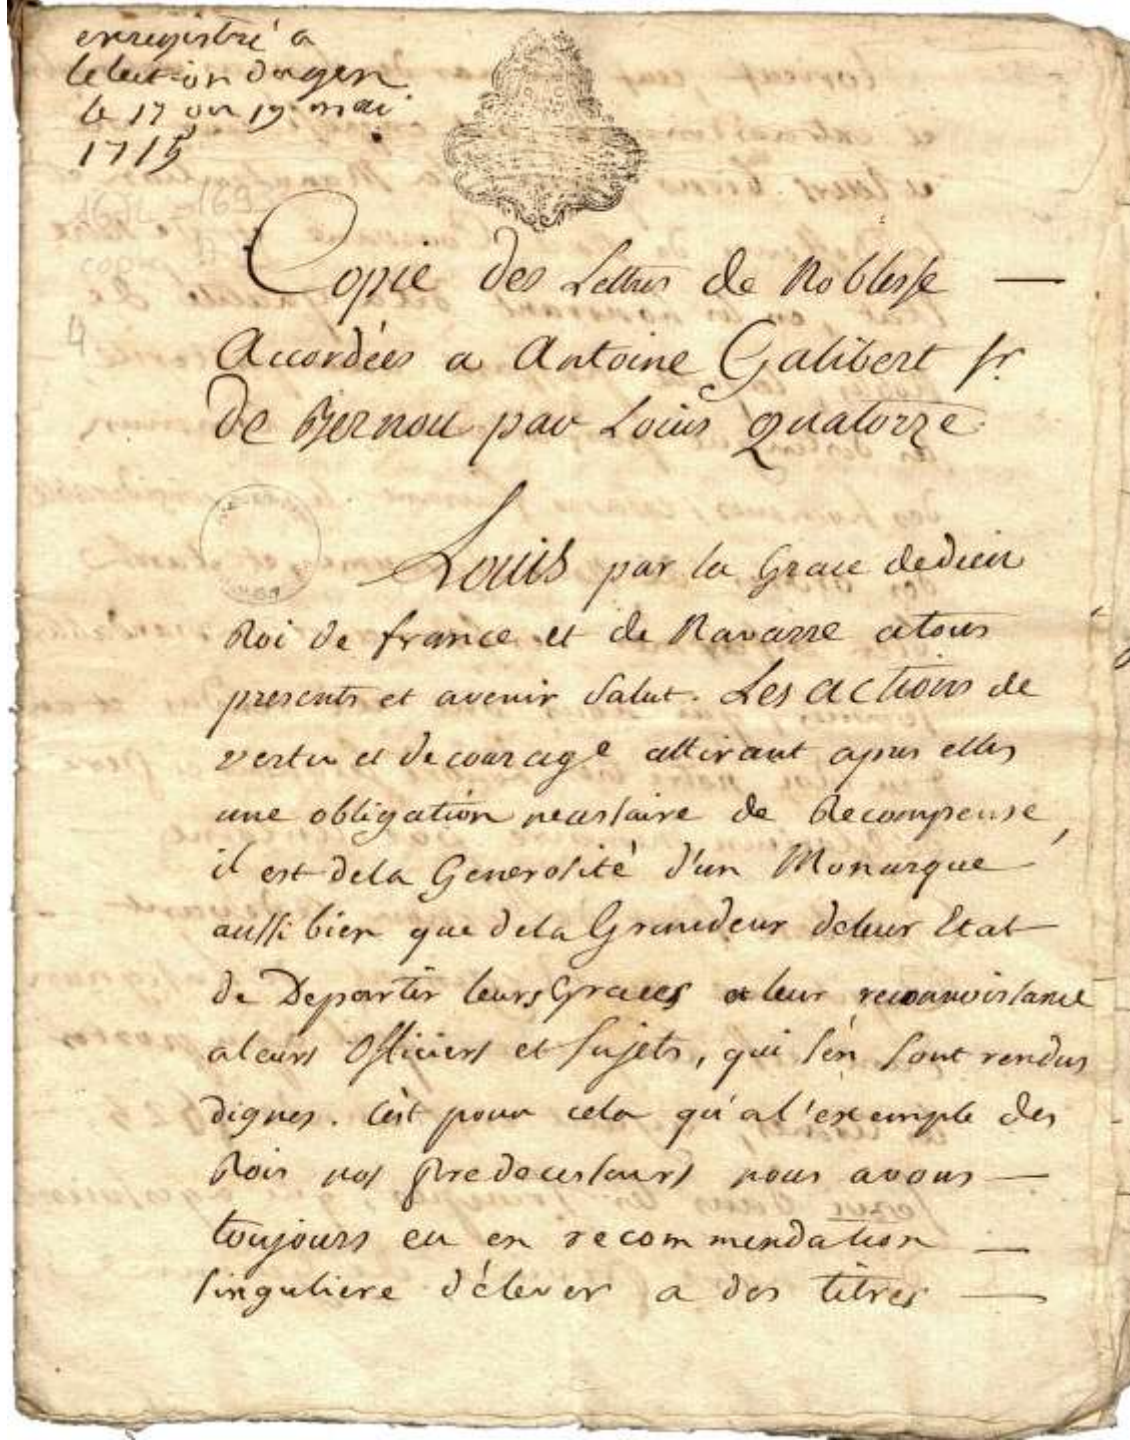 enregistré a
lelection dagen
le 17 ou 19 mai
1715
4
Copie des Lettres de Noblesse —
Accordées a Antoine Galibert Sr.
de Bernou par Louis Quatorze
Louis par la Grace dedieu
Roi de france et de Navarre atous
presents et avenir Salut. Les actions de
vertu et de courage attirant apres elles
une obligation necessaire de Recompense,
il est dela Generosité d'un Monarque
aussi bien que dela Grandeur deleur Etat
de Departir leurs Graces et leur reconnoissance
aleurs Officiers et Sujets, qui s'en sont rendus
dignes. C'est pour cela qu'a l'exemple des
Rois nos Predecesseurs nous avons —
toujours eu en recommendation —
Singuliere d'élever a des titres —